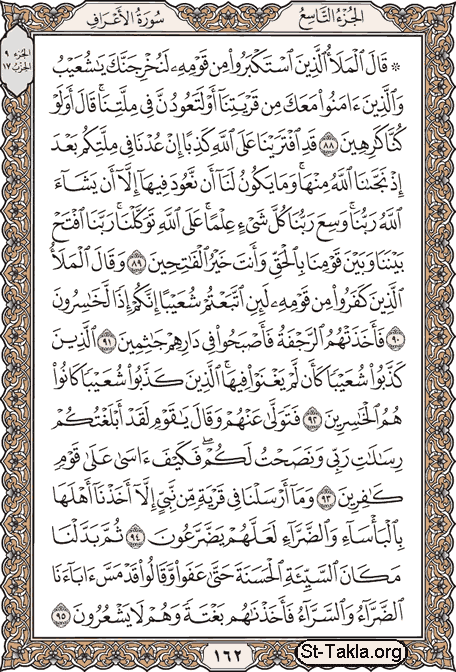 الجزء التاسع
سورة الأعراف
الجزء ٩
الحزب ١٧
۞ قَالَ ٱلۡمَلَأُ ٱلَّذِينَ ٱسۡتَكۡبَرُواْ مِن قَوۡمِهِۦ لَنُخۡرِجَنَّكَ يَٰشُعَيۡبُ
وَٱلَّذِينَ ءَامَنُواْ مَعَكَ مِن قَرۡيَتِنَآ أَوۡ لَتَعُودُنَّ فِي مِلَّتِنَاۚ قَالَ أَوَلَوۡ
كُنَّا كَٰرِهِينَ ٨٨ قَدِ ٱفۡتَرَيۡنَا عَلَى ٱللَّهِ كَذِبًا إِنۡ عُدۡنَا فِي مِلَّتِكُم بَعۡدَ
إِذۡ نَجَّىٰنَا ٱللَّهُ مِنۡهَاۚ وَمَا يَكُونُ لَنَآ أَن نَّعُودَ فِيهَآ إِلَّآ أَن يَشَآءَ
ٱللَّهُ رَبُّنَاۚ وَسِعَ رَبُّنَا كُلَّ شَيۡءٍ عِلۡمًاۚ عَلَى ٱللَّهِ تَوَكَّلۡنَاۚ رَبَّنَا ٱفۡتَحۡ
بَيۡنَنَا وَبَيۡنَ قَوۡمِنَا بِٱلۡحَقِّ وَأَنتَ خَيۡرُ ٱلۡفَٰتِحِينَ ٨٩ وَقَالَ ٱلۡمَلَأُ
ٱلَّذِينَ كَفَرُواْ مِن قَوۡمِهِۦ لَئِنِ ٱتَّبَعۡتُمۡ شُعَيۡبًا إِنَّكُمۡ إِذٗا لَّخَٰسِرُونَ
٩٠ فَأَخَذَتۡهُمُ ٱلرَّجۡفَةُ فَأَصۡبَحُواْ فِي دَارِهِمۡ جَٰثِمِينَ ٩١ ٱلَّذِينَ
كَذَّبُواْ شُعَيۡبٗا كَأَن لَّمۡ يَغۡنَوۡاْ فِيهَاۚ ٱلَّذِينَ كَذَّبُواْ شُعَيۡبٗا كَانُواْ
هُمُ ٱلۡخَٰسِرِينَ ٩٢ فَتَوَلَّىٰ عَنۡهُمۡ وَقَالَ يَٰقَوۡمِ لَقَدۡ أَبۡلَغۡتُكُمۡ
رِسَٰلَٰتِ رَبِّي وَنَصَحۡتُ لَكُمۡۖ فَكَيۡفَ ءَاسَىٰ عَلَىٰ قَوۡمٖ
كَٰفِرِينَ ٩٣ وَمَآ أَرۡسَلۡنَا فِي قَرۡيَةٖ مِّن نَّبِيٍّ إِلَّآ أَخَذۡنَآ أَهۡلَهَا
بِٱلۡبَأۡسَآءِ وَٱلضَّرَّآءِ لَعَلَّهُمۡ يَضَّرَّعُونَ ٩٤ ثُمَّ بَدَّلۡنَا
مَكَانَ ٱلسَّيِّئَةِ ٱلۡحَسَنَةَ حَتَّىٰ عَفَواْ وَّقَالُواْ قَدۡ مَسَّ ءَابَآءَنَا
ٱلضَّرَّآءُ وَٱلسَّرَّآءُ فَأَخَذۡنَٰهُم بَغۡتَةٗ وَهُمۡ لَا يَشۡعُرُونَ ٩٥
١٦٢
St-Takla.org